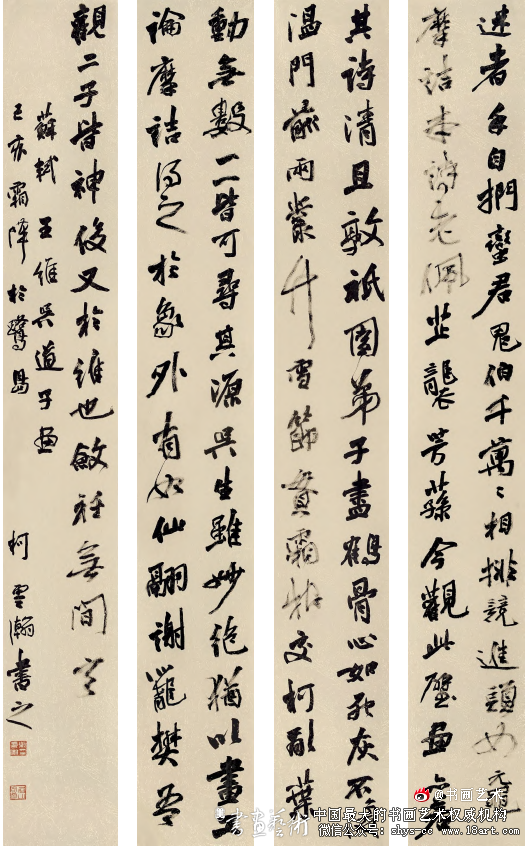 迷者手自捫蠻君鬼伯千萬〻相排競進頭如黿
摩詰本詩老佩芷襲芳蓀今觀此壁畫亦若
其詩清且敦祇園弟子盡鶴骨心如死灰不復
溫門前兩叢竹雪節貫霜根交柯亂葉
動無數一一皆可尋其源吳生雖妙絕猶以畫工
論摩詰得之於象外有如仙翮謝籠樊吾
觀二子皆神俊又於維也斂衽無間言
蘇軾 王維吳道子畫
己亥霜降於鷺島 柯雲瀚書之
@书画艺术
書畫藝術 中国最大的书画艺术权威机构
微信公众号: shys-cc www.18art.com